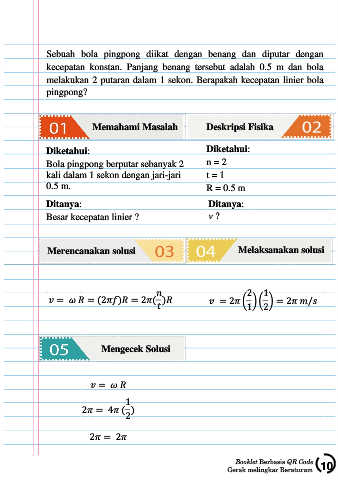 Sebuah bola pingpong diikat dengan benang dan diputar dengan
kecepatan konstan. Panjang benang tersebut adalah 0.5 m dan bola
melakukan 2 putaran dalam 1 sekon. Berapakah kecepatan linier bola
pingpong?
01 Memahami Masalah
Deskripsi Fisika 02
Diketahui:
Bola pingpong berputar sebanyak 2
kali dalam 1 sekon dengan jari-jari
0.5 m.
Ditanya:
Besar kecepatan linier ?
Diketahui:
n = 2
t = 1
R = 0.5 m
Ditanya:
v ?
Merencanakan solusi 03
04 Melaksanakan solusi
v = ω R = (2πf)R = 2π(n/t)R
v = 2π (2/1) (1/2) = 2π m/s
05 Mengecek Solusi
v = ω R
2π = 4π (1/2)
2π = 2π
Booklet Berbasis QR Code
Gerak melingkar Beraturan
10